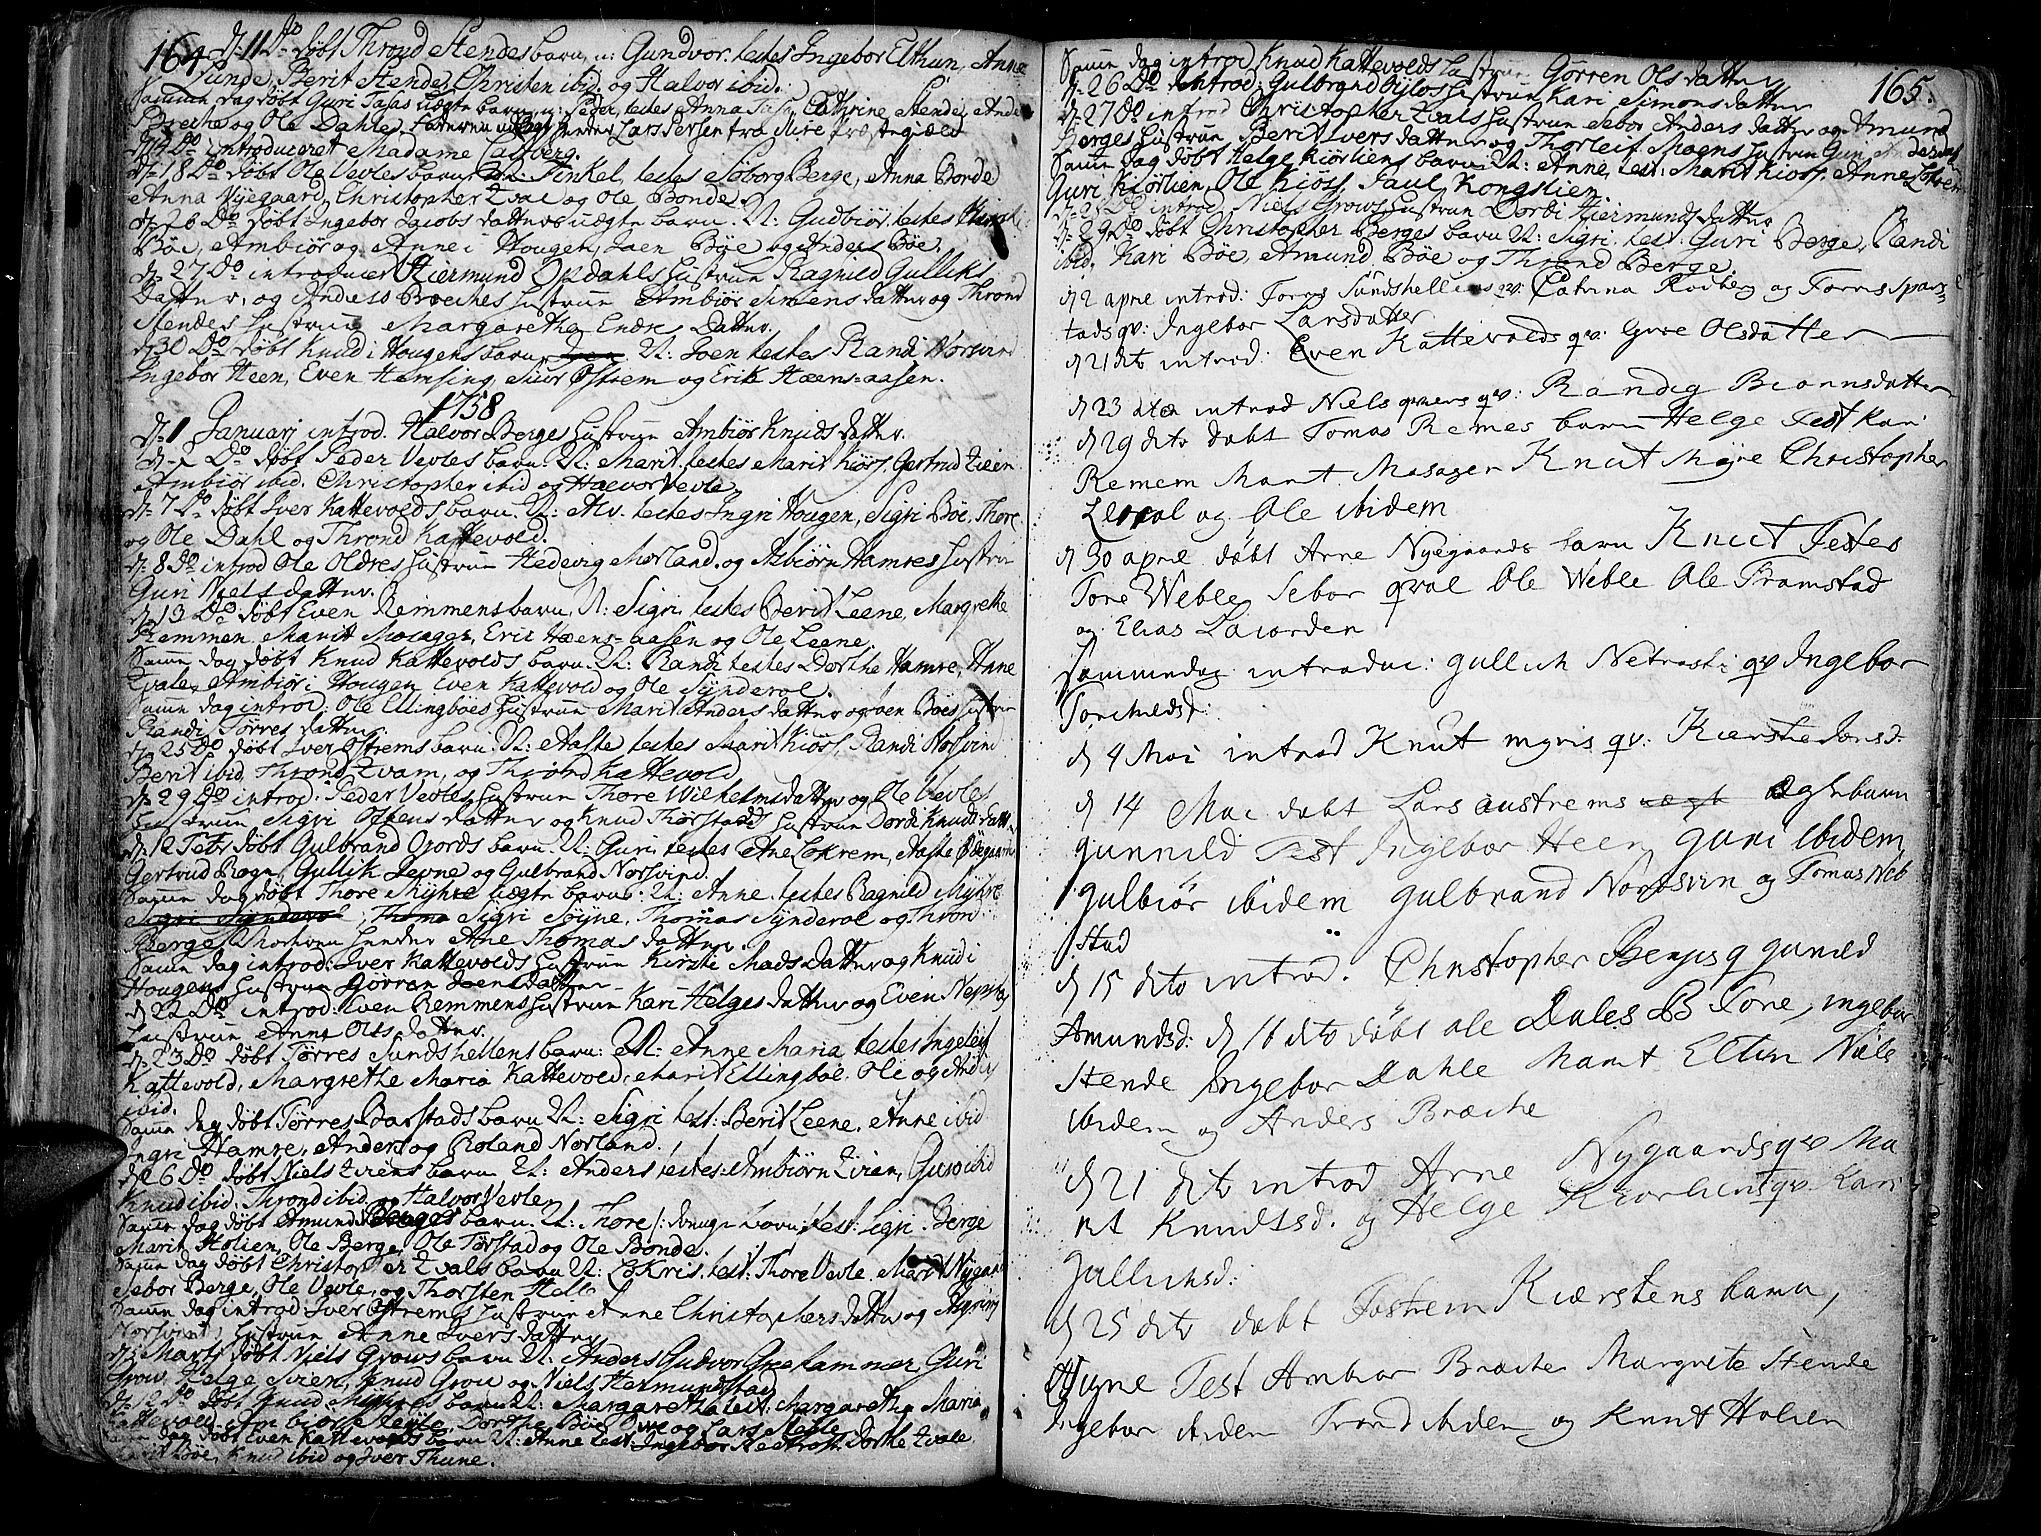 164 d: 11 Do døbt Thrond Stendes barn, n: Gundvor. testes Ingebor Elthun, Anne
Lunde, Berit Stende, Christen ibid. og Halvor ibid.
Samme dag døbt Guri uægte barn n: Peder, testes Anna Cathrine Stende, Anders
Breche og Ole Dahle,
d 14 Do introduceret Madame Castberg.
d: 18 Do døbt Ole Vevles barn N: Finkel, testes Søborg Berge, Anna Borde
Anna Nyegaard, Christopher Zval og Ole Bonde.
d: 26 Do døbt Ingebor Jacobs datters uægte barn. N: Gudbiør, testes
Bøe, Ambiør og Anne i Hougen, Joen Bøe og Anders Bøe.
d: 27 Do introducer Giermund Opdahls hustrue Ragnild Gulliks
Datter, og Anders Breches hustrue Ambiør Simens datter og Thrond
Stendes hustrue Margaretha Endre Datter.
d 30 Do døbt Knud i Hougens barn N: Joen testes Randi Norsvind
Ingebor Heen, Even Hemsing, Siur Østrem og Erik Hæens=aasen.
1758
d: 1 Januarj introd. Halvor Berges hustrue Ambiør Knuds datter.
d: Do døbt Peder Vevles barn. N: Marit, testes Marit Kiøss, Gertrud Zien
Ambiør ibid. Christopher ibid og Halvor Vevle.
d: 7 Do døbt Iver Kattevolds barn. N: Alv. testes Ingri Hougen, Sigri Bøe, Thore
og Ole Dahl og Thrond Kattevold.
d: 8 Do introd Ole Oldres hustrue Hedevig Morland, og Asbiørn Hamres hustrue
Guri Niels datter.
d: 13 Do døbt Even Remmens barn, N: Sigri, testes Berit Leene, Margrethe
Remmen, Marit Moager, Eric Hæens=aasen og Ole Leene.
Samme dag døbt Knud Kattevolds barn. N: Randi testes Dorthe Hamre, Hane
Zvale, Ambiør i Hougen Even Kattevold og Ole Synderol.
Samme dag introd: Ole Ellingbøes hustrue Marit Anders datter og Joen Bøes hustrue
Randi Torres datter.
d: 25 Do døbt Iver Østrems barn. N: Aaste testes Marit Kiøss, Randi Norsvind
Berit ibid, Thrond Zvam, og Thrond Kattevold
d: 29 Do introd: Peder Vevles hustrue Thore Wilhelms datter og Ole Vevles
hustrue Sigri Ostens datter og Knud Thorstads hustrue Dordi Knuds datter
d: 12 Febr døbt Gulbrand Ojords barn. N: Guri, testes Ane Lokrem, Aaste Ødegaard
Gertrud Rogn, Gullik Jevne og Gulbrand Norsvind.
Samme dag døbt Thore Myhre uægte barn: N: Anne. testes Ragnild Myhre
Sigri Synderol, Thoma Sigri Søyne, Thomas Synderol og Thrond
Berge, Moderen hender Ane Thomas datter.
Samme dag introd: Iver Kattevolds hustrue Kirsti Mads datter og Knud i
Hougens hustrue Gørran Joens datter
d 22 Do introd: Even Remmens hustrue Kari Helges datter og Even
hustrue Anne Ols datter.
d: 23 Do døbt Tørres Sundshellens barn: N: Anne Maria testes Ingeleif
Kattevold, Margrethe Maria Kattevold, Marit Ellingbøe. Ole og Anders
ibid.
Samme dag døbt Tørres Barstads barn N: Sigri test: Berit Leene, Anne ibid
Ingri Hamre, Anders og Roland Norland.
d 26 Do døbt Niels Zviens barn N: Anders testes: Ambiørn Zvien, Guro ibid
Knud ibid. Thrond ibid. og Halvor Vevle.
Samme dag døbt Amund Berges barn. N: Thore test: Sigri Berge
Marit Holien, Ole Berge, Ole Tørstad og Ole Bonde.
Samme dag døbt Christopher Zvals barn N: Lokris. test: Thore Vevle. Marit Nygaard
Sebor Berge, Ole Vevle, og Thorsten Helle
Samme dag introd: Iver Østrems hustrue Anne Christophers datter og
Norsvind, hustrue Anne Ivers datter
d: Marts døbt Niels Grows barn N: Anders Gudvor Grehammer, Guri
Grow. Helge Zvien, Knud Grow og Niels Hermundstad
d: 12 Do døbt Knud Myhres barn N: Margaretha test: Margaretha Maria
Kattevold Ambiør Stende, Dorthe Bøe, og Lars Melle.
Samme dag døbt Even Kattevolds barn N: Anne test: Ingebor Nestrost, Dorthe Zvale
Bøe, Knud ibid og Iver Thune.
165.
Samme dag introd Knud Kattevolds hustrue Gørren Ols datter
d: 26 Do introd: Gulbrand hustrue Kari Simons datter
d: 27 Do introd Christopher Zvals hustrue Sebor Anders datter og Amund
Berges hustrue Berit Ivers datter og Thorleif Moens hustrue Guri
Samme dag døbt Helge Kiørliens barn. N: Anne, test: Marit Kiøss, Anne
Guri Kiørlien, Ole Kiøss, Paul Kongslien.
d: 28 Do introd Niels Grows hustrue Dorbi Hiermunds datter
d: 29 Do døbt Christopher Berges barn N: Sigri. test: Guri Berge, Randi
ibid. Kari Bøe, Amund Bøe og Thrond Berge.
d 2 apre introd: Torres Sundshellens qv: Catrina Rodberg og Torres Spars
tads qv: Ingebor Larsdatter
d 21 dito introd: Even Kattevolds qv: Guroe Olsdatter
d 23 dito introd Niels qvaens qv: Randig Bionnsdatter
d 29 dito døbt Tomas Remes barn Helge Test Kari
Remem Marit Masager Knut Myre Christopher
og Ole ibidem
d 30 aprel døbt Arne Nyegaards barn Knut Testes
Tore Weble Sebor qval Ole Weble Ole Framstad
og Elias Laiorden
Sammedag introduc: Gullich Netrosti qv Ingebor
Torchildsd:
d 4 Mai introd Knut myris qv: Kierste Jonsd.
d 14 Mai døbt Lars Austrems uægt Ægtebarn
Gunnild Test Ingebor Heen Guri ibidem
Gulbiør ibidem Gulbrand Nordsvin og Tomas Neb
stad
d 15 dito introd. Christopher Berjes q Gunild
Amundsd: d 16 dito døbt ole Dales B Tore, Ingebor
Stende Ingebor Dahle Marit Eltun Niels
ibidem og Anders Bræche
d 21 dito introd Arne Nygaards qv Ma
rit Knudtsd. og Helge Kiorliens qv Kari
Gullichsd:
d 25 dito døbt Tostrem Kierstens barn,
Ajgne Test Ambior Bræche Margrete Stende
Ingebor ibidem Trond ibidem og Knut Holien